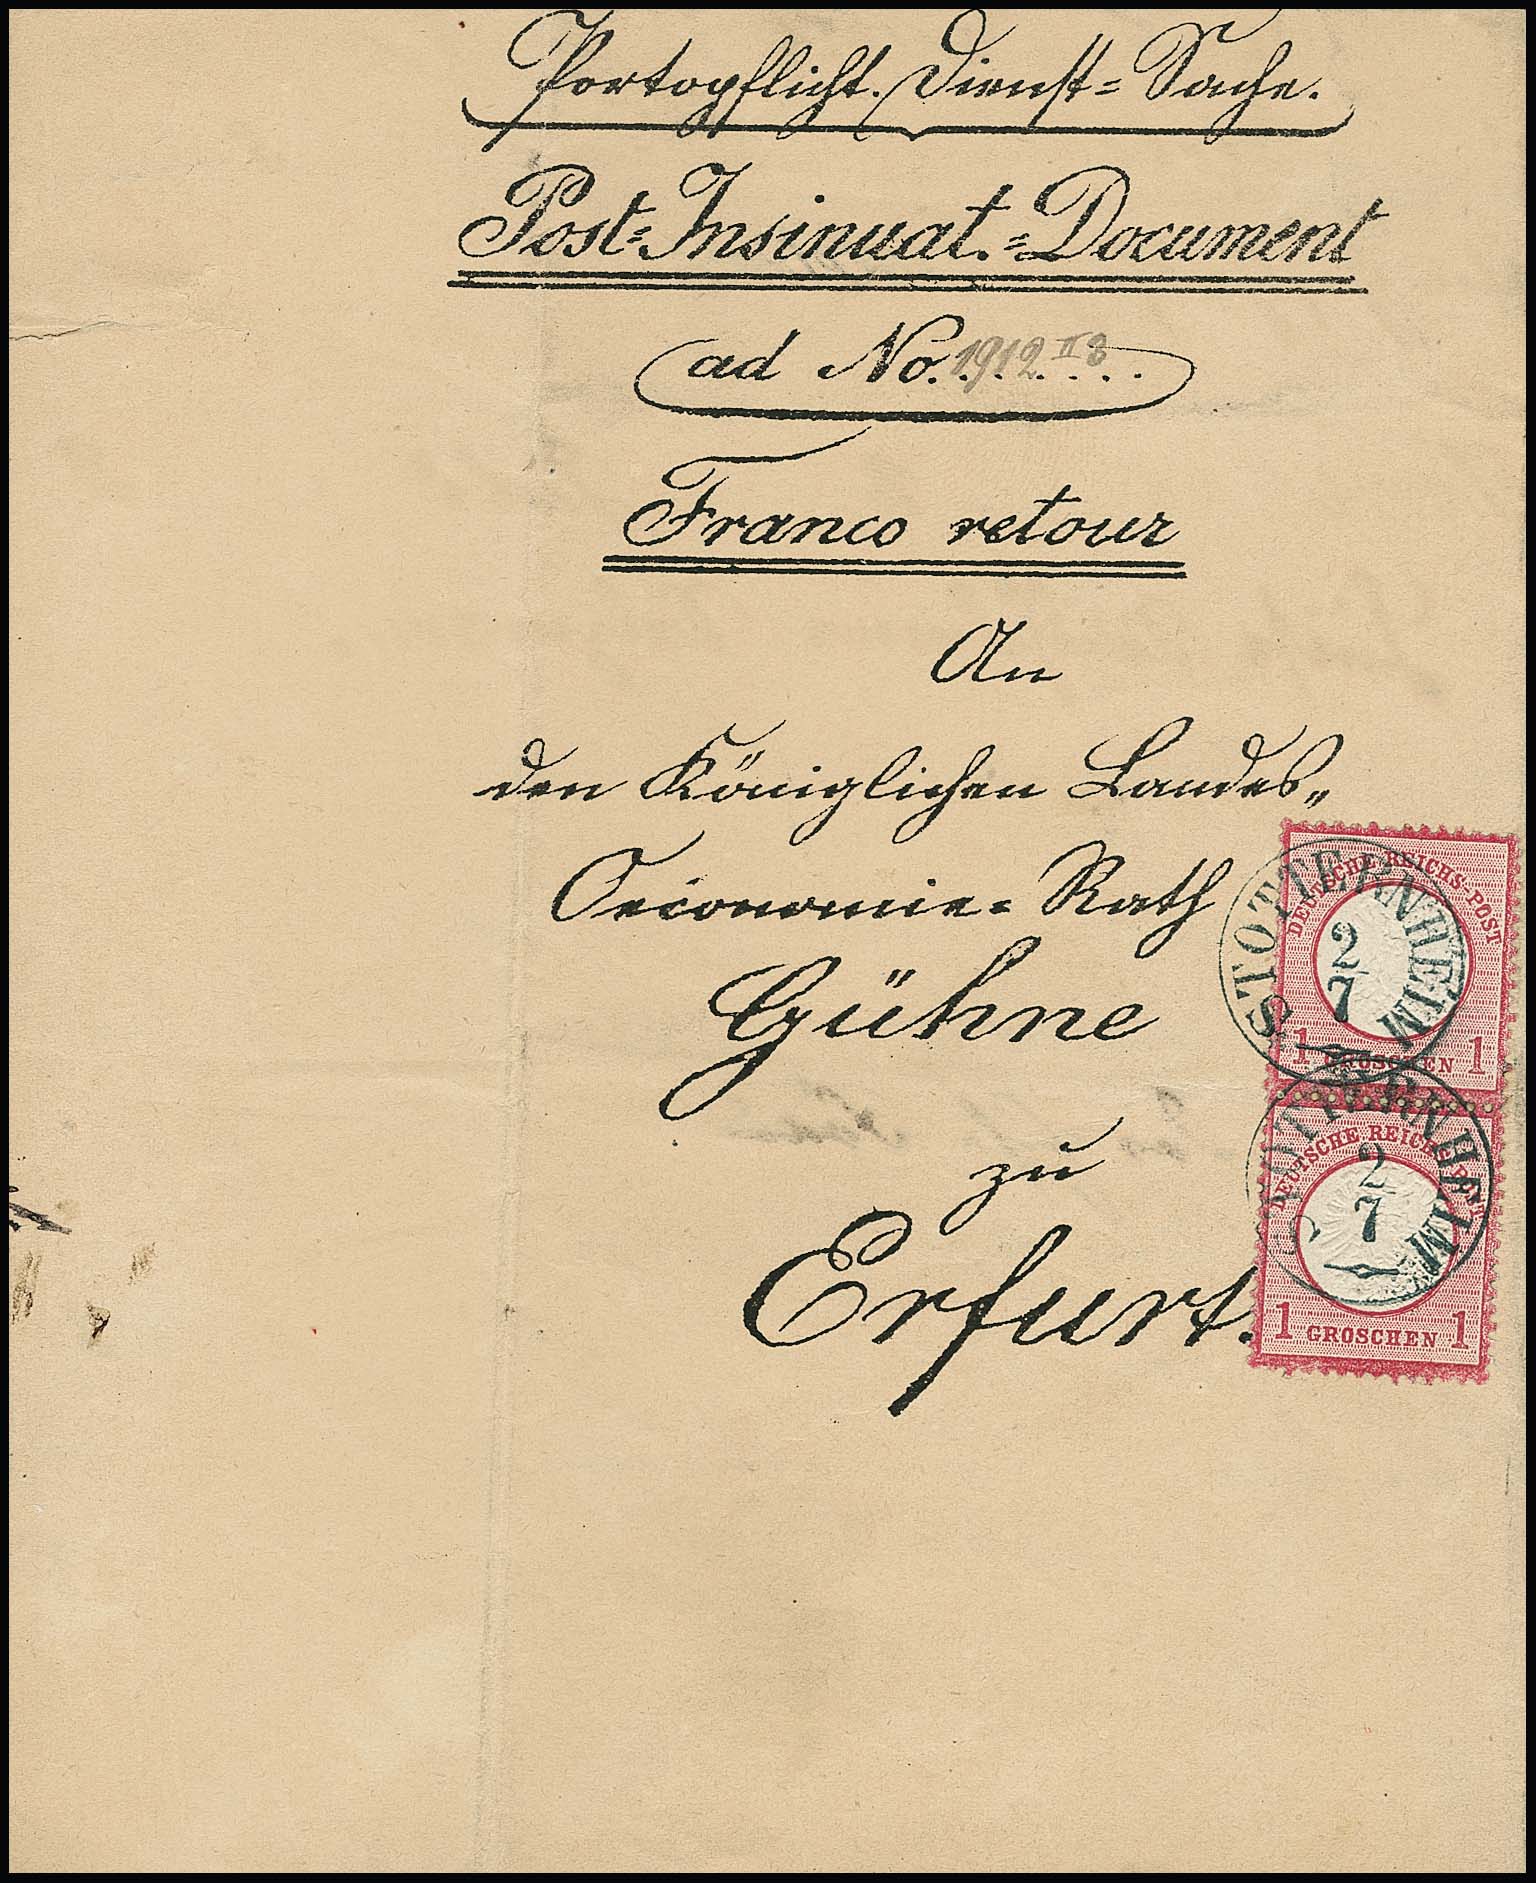 Portopflicht. Dienst=Sache.
Post=Insinuat.=Document
ad No. 1912 II 8
Franco retour
An
den Königlichen Landes„
Oeconomie=Rath
Gühne
zu
Erfurt.
DEUTSCHE REICHS-POST
STOTTERNHEIM
2
7
1 GROSCHEN 1
DEUTSCHE REICHS-POST
STOTTERNHEIM
2
7
1 GROSCHEN 1